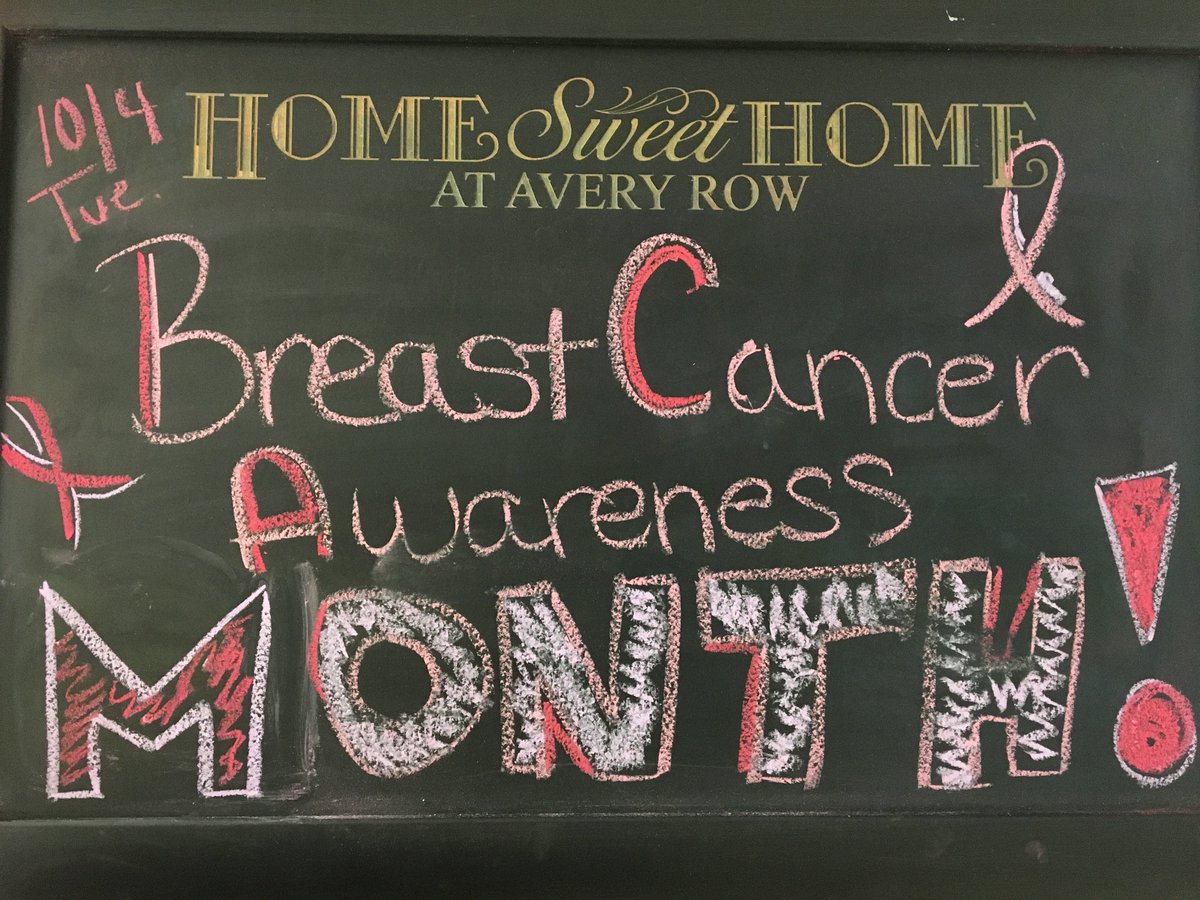 10/4
Tue.
HOME Sweet HOME
AT AVERY ROW
Breast Cancer
Awareness
MONTH!